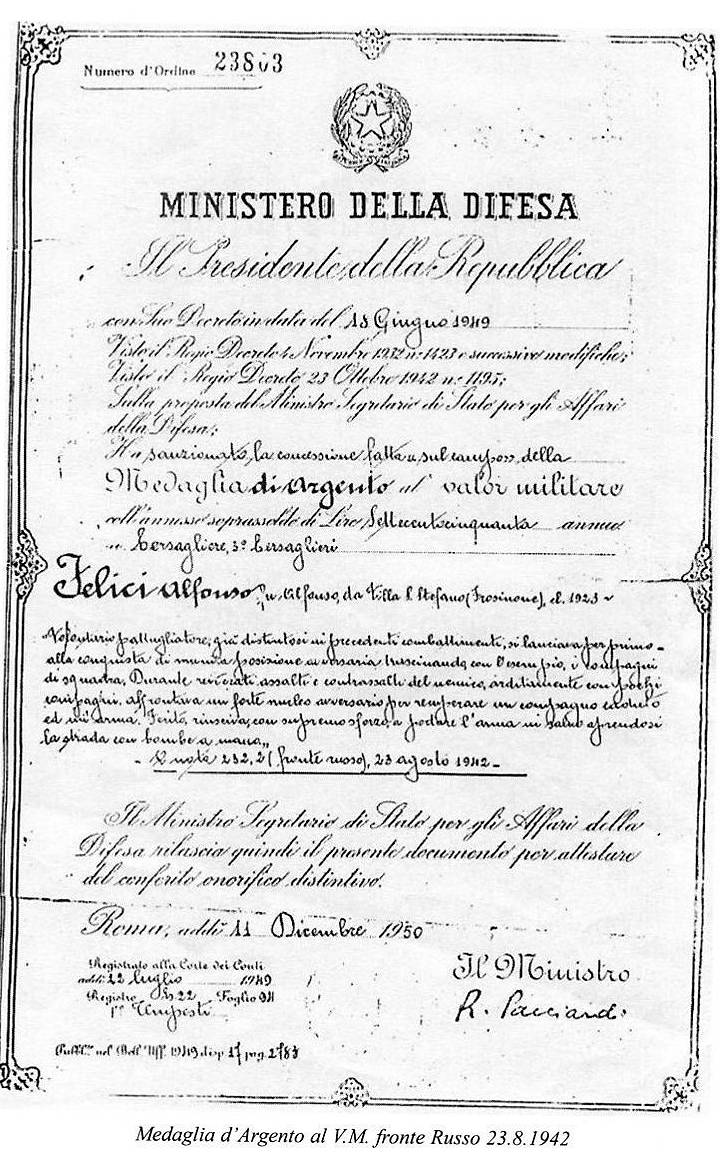 Numero d'Ordine 23803
MINISTERO DELLA DIFESA
Il Presidente della Repubblica
con Suo Decreto in data del 18 Giugno 1949
Visto il Regio Decreto 4 Novembre 1932 n. 1423 e successive modifiche;
Visto il Regio Decreto 23 Ottobre 1942 n. 1195;
Sulla proposta del Ministro Segretario di Stato per gli Affari
della Difesa;
Ha sanzionato la concessione fatta sul campo della
Medaglia di Argento al valor militare
coll'annesso soprassoldo di Lire Settecentocinquanta annue
Bersagliere, 3° Bersaglieri
Felici Alfonso fu Alfonso, da Villa S. Stefano (Frosinone), cl. 1923
"Volontario pattugliatore, già distintosi in precedenti combattimenti, si lanciava per primo
alla conquista di munita posizione avversaria trascinando, con l'esempio, i compagni
di squadra. Durante reiterati assalti e contrassalti del nemico, arditamente con pochi
compagni, affrontava un forte nucleo avversario per recuperare un compagno caduto
ed un'arma. Ferito, riusciva, con supremo sforzo, a portare l'arma in salvo aprendosi
la strada con bombe a mano„
- Quota 232,2 (fronte russo), 23 agosto 1942 -
Il Ministro Segretario di Stato per gli Affari della
Difesa rilascia quindi il presente documento per attestare
del conferito onorifico distintivo.
Roma, addì 11 Dicembre 1950
Registrato alla Corte dei Conti
addì 22 luglio 1949
Registro 22 Foglio 94
Tempesti
Il Ministro
R. Pacciardi
Pubbl. nel Boll. Uff. 1949 disp. 17 pag. 2783
Medaglia d'Argento al V.M. fronte Russo 23.8.1942